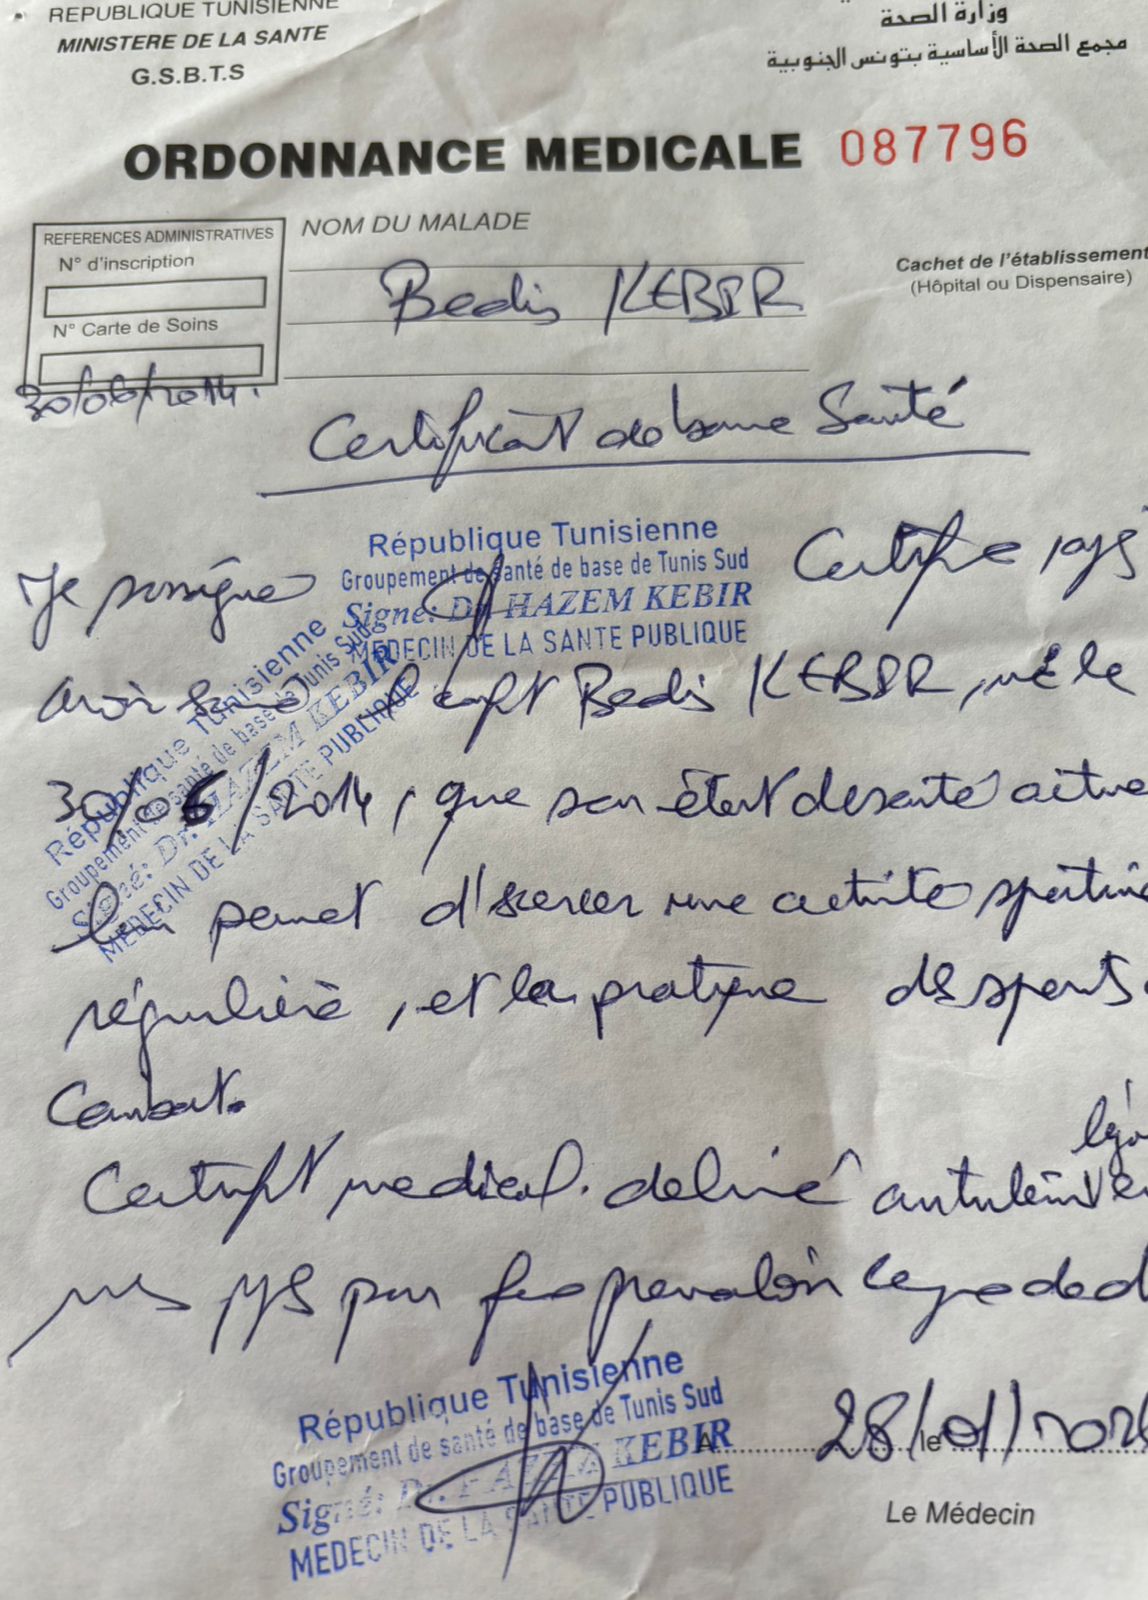 REPUBLIQUE TUNISIENNE
MINISTERE DE LA SANTE
G.S.B.T.S
وزارة الصحة
مجمع الصحة الأساسية بتونس الجنوبية
ORDONNANCE MEDICALE 087796
REFERENCES ADMINISTRATIVES
N° d'inscription
N° Carte de Soins
NOM DU MALADE
Bedis KEBIR
Cachet de l'établissement
(Hôpital ou Dispensaire)
30/06/2014.
Certificat de bonne Santé
République Tunisienne
Groupement de santé de base de Tunis Sud
Signé: Dr. HAZEM KEBIR
MEDECIN DE LA SANTE PUBLIQUE
Je soussigné Certifie
avoir Bedis KEBIR, né le
République Tunisienne
Groupement de santé de base de Tunis Sud
Signé: Dr. HAZEM KEBIR
MEDECIN DE LA SANTE PUBLIQUE
30/06/2014, que son état de santé
permet d'exercer une activité
régulière, et la pratique des sports
Combat.
medical délivré
pour
République Tunisienne
Groupement de santé de base de Tunis Sud
Signé: Dr. HAZEM KEBIR
MEDECIN DE LA SANTE PUBLIQUE
A 28/01/ le
Le Médecin